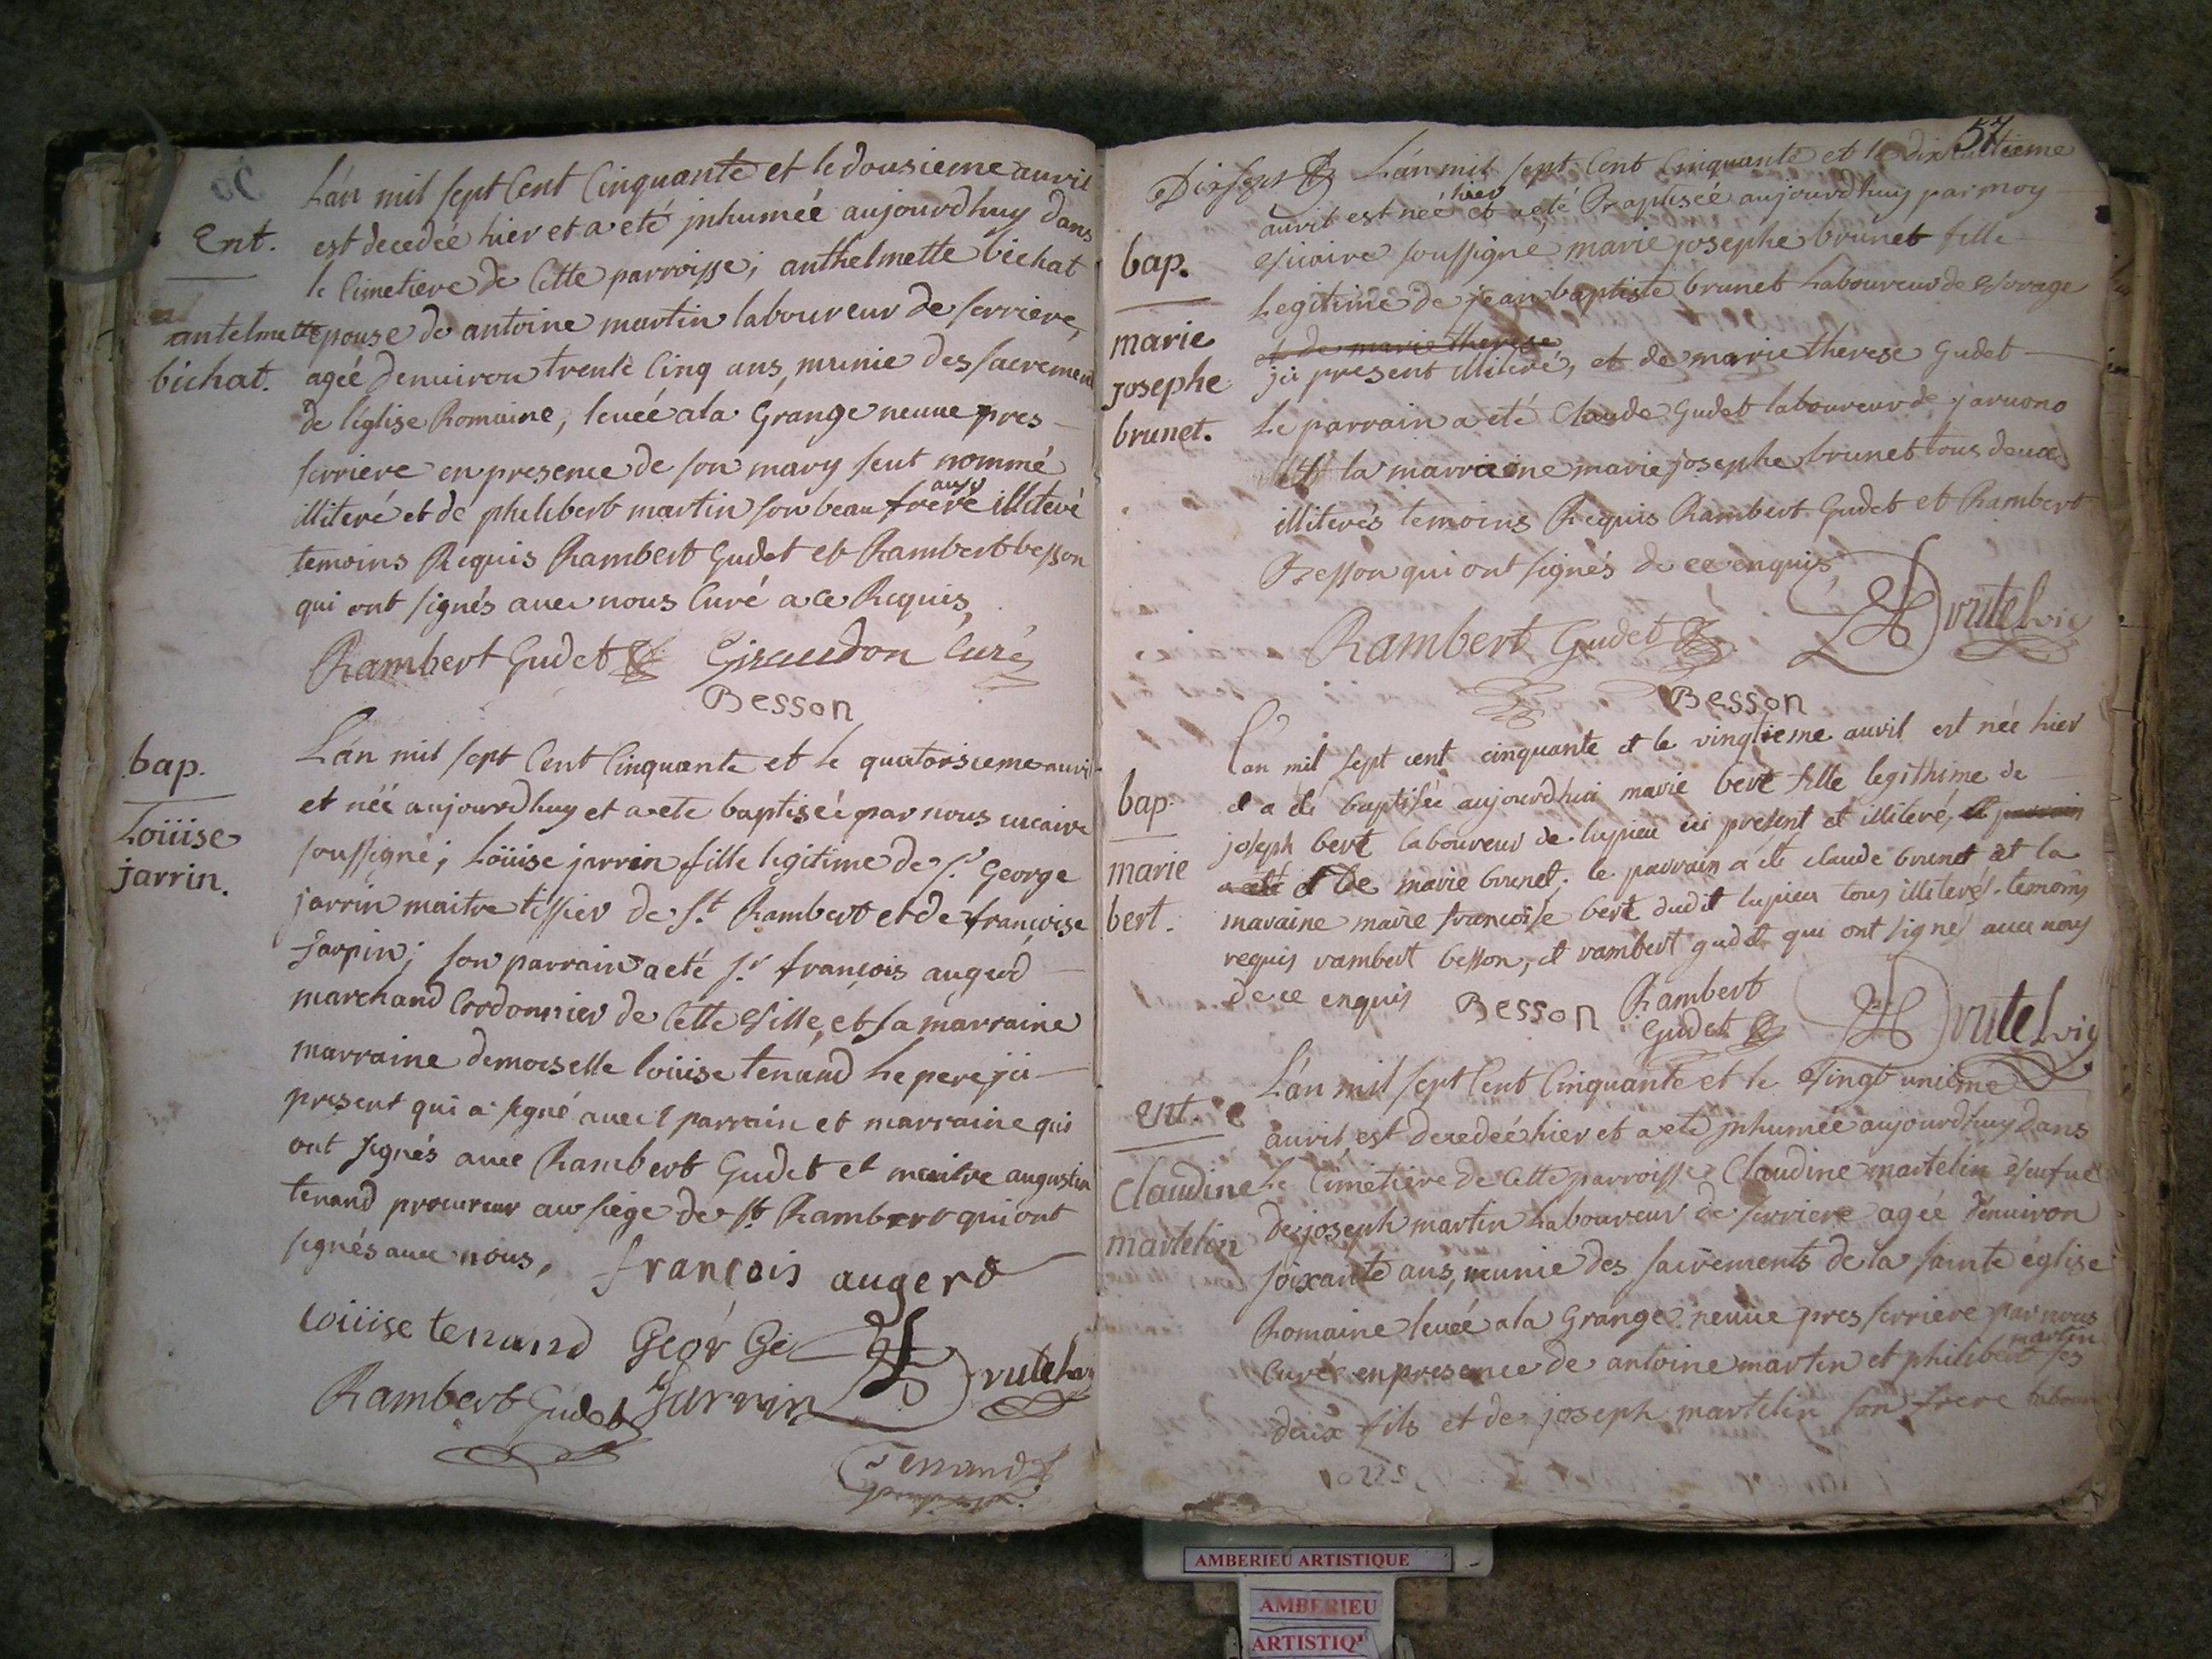 L'an mil sept Cent Cinquante et le dousieme auvril
Ent. est decedeé hier et a eté jnhumeé aujourd'huy dans
le Cimetiere de Cette parroisse; anthelmette bichat
antelmette epouse de antoine martin laboureur de serriere,
bichat. ageé denuiron trente Cinq ans, munie des sacrement
de l'église Romaine, leueé a la Grange neuue pres
serriere en presence de son mary seut nommé
illiteré et de philibert martin son beau frere aussy illiteré
temoins Requis Rambert Gudet et Rambert besson
qui ont signés auec nous Curé a ce Requis,
Rambert Gudet Giraudon Curé
Besson
bap. L'an mil sept Cent Cinquante et le quatorsieme auvril
et néé aujourdhuy et a ete baptiseé par nous uicaire
Loüise soussigné; Loüise jarrin fille legitime de sr. George
jarrin. jarrin maitre tissier de st. Rambert et de françoise
Jarpin; son parrain a eté sr. françois augerd
marchand Cordonnier de Cette Ville, et sa marraine
marraine demoiselle loüise tenand Le pere jci
present qui a signé auec parrain et marraine qui
ont signés auec Rambert Gudet et maitre augustin
tenand procureur au siege de st Rambert qui ont
signés auec nous, françois augerd
loüise tenand George
Rambert Gudet Jarrin
Tenand
57
L'an mil sept Cent Cinquante et le dixhuitieme
auvril est neé hier et a eté Baptiseé aujourdhuy par moy
bap. Vicaire soussigné marie josephe brunet fille
Legitime de jean baptiste brunet Laboureur de
marie et de marie therese
josephe jci present illiteré, et de marie therese Gudet
brunet. Le parrain a eté Claude Gudet laboureur de
et la marraine marie josephe brunet tous deux
illiterés temoins Requis Rambert Gudet et Rambert
Besson qui ont signés de ce enquis,
Rambert Gudet
Besson
L'an mil sept cent cinquante et le vingtieme auvil est née hier
bap. et a été baptisée aujourdhui marie bert fille legithime de
joseph bert laboureur de lupieu ici present et illiteré, et parrain
marie a eté et de marie brunet. le parrain a eté claude brunet et la
bert. maraine marie françoise bert dudit lupieu tous illiterés. temoins
requis rambert besson, et rambert gudet qui ont signés auec nous
de ce enquis Besson Rambert
Gudet
L'an mil sept Cent Cinquante et le Vingt unieme
ent. auvril, est decedeé hier et a eté jnhumeé aujourdhuy dans
Claudine Le Cimetiere de Cette parroisse Claudine martelin Veufue
martelin De joseph martin Laboureur de serriere ageé denuiron
soixante ans, munie des sacrements de la sainte église
Romaine leueé a la Grange neuue pres serriere par nous
Curé en presence de antoine martin et philibert martin ses
deux fils et de joseph martelin son frere
AMBERIEU ARTISTIQUE
AMBERIEU
ARTISTIQ